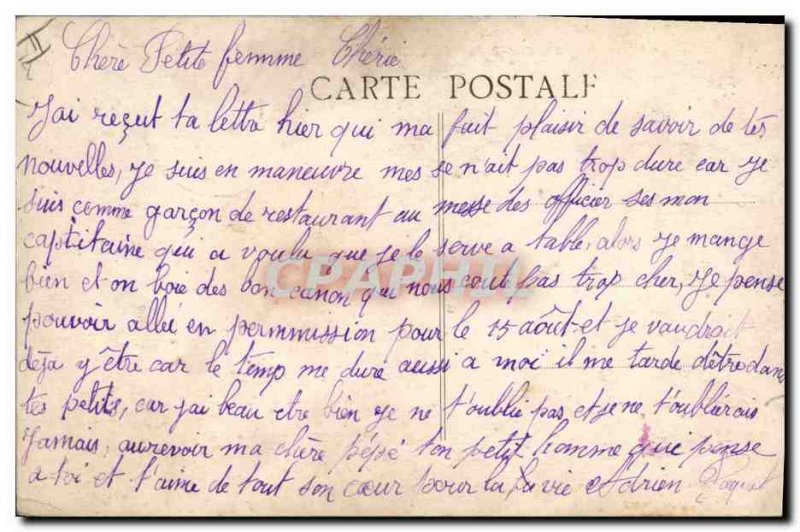 Chère Petite femme Chérie
CARTE POSTALE
J'ai reçut ta lettre hier qui ma fait plaisir de savoir de tes
nouvelles, je suis en maneuvre mes se n'ait pas trop dure car je
suis comme garçon de restaurant au messe des officier ses mon
captitaine qui a voulu que je le serve a table, alors je mange
bien et on boie des bon canon qui nous cout pas trop cher, je pense
pouvoir allé en permmission pour le 15 août et je vaudrait
déja y être car le temp me dure aussi a moi il me tarde d'être dans
tes petits, car j'ai beau etre bien je ne t'oublie pas et je ne t'oublirais
Jamais, aurevoir ma chère pépé ton petit homme qui pense
a toi et t'aime de tout son cœur pour la vie Adrien Paquet
CPAPHIL